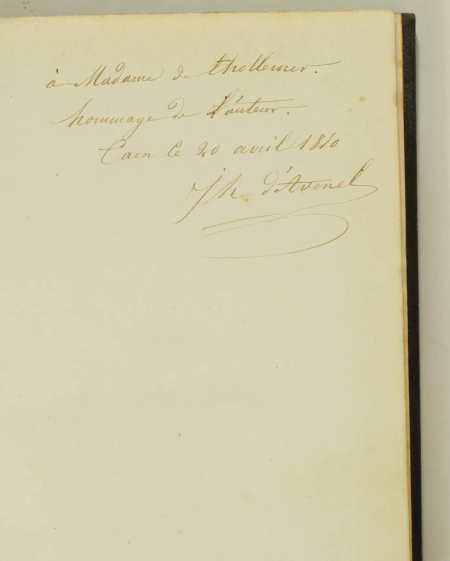 à Madame de thollemer.
hommage de L'auteur.
Caen le 20 avril 1850
Th. d'Avenel